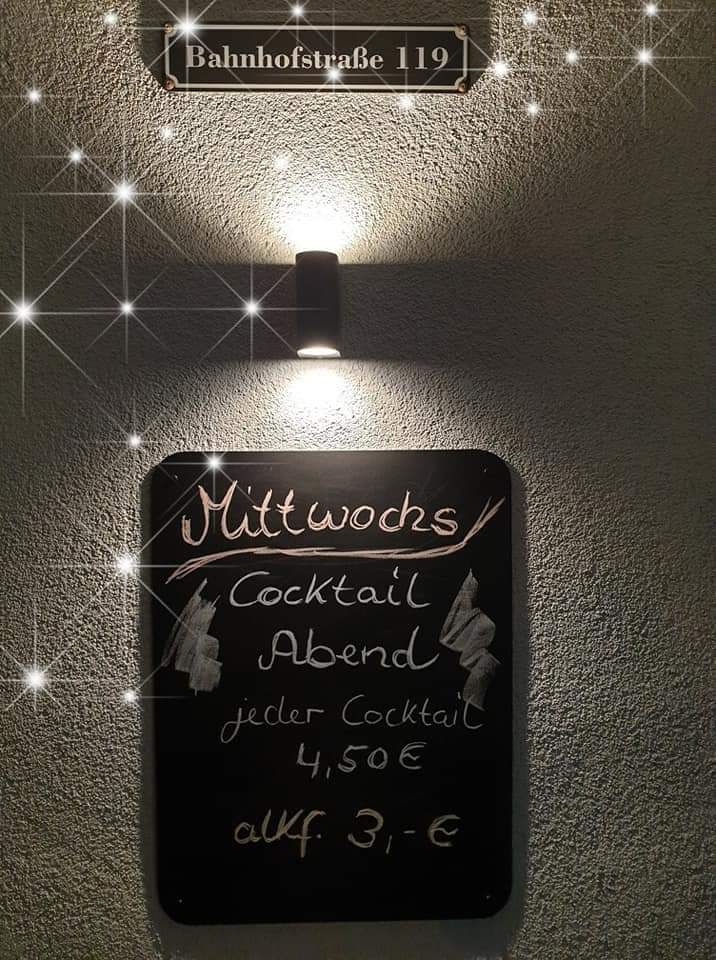 Bahnhofstraße 119
Mittwochs
Cocktail
Abend
jeder Cocktail
4,50€
alkf. 3,-€